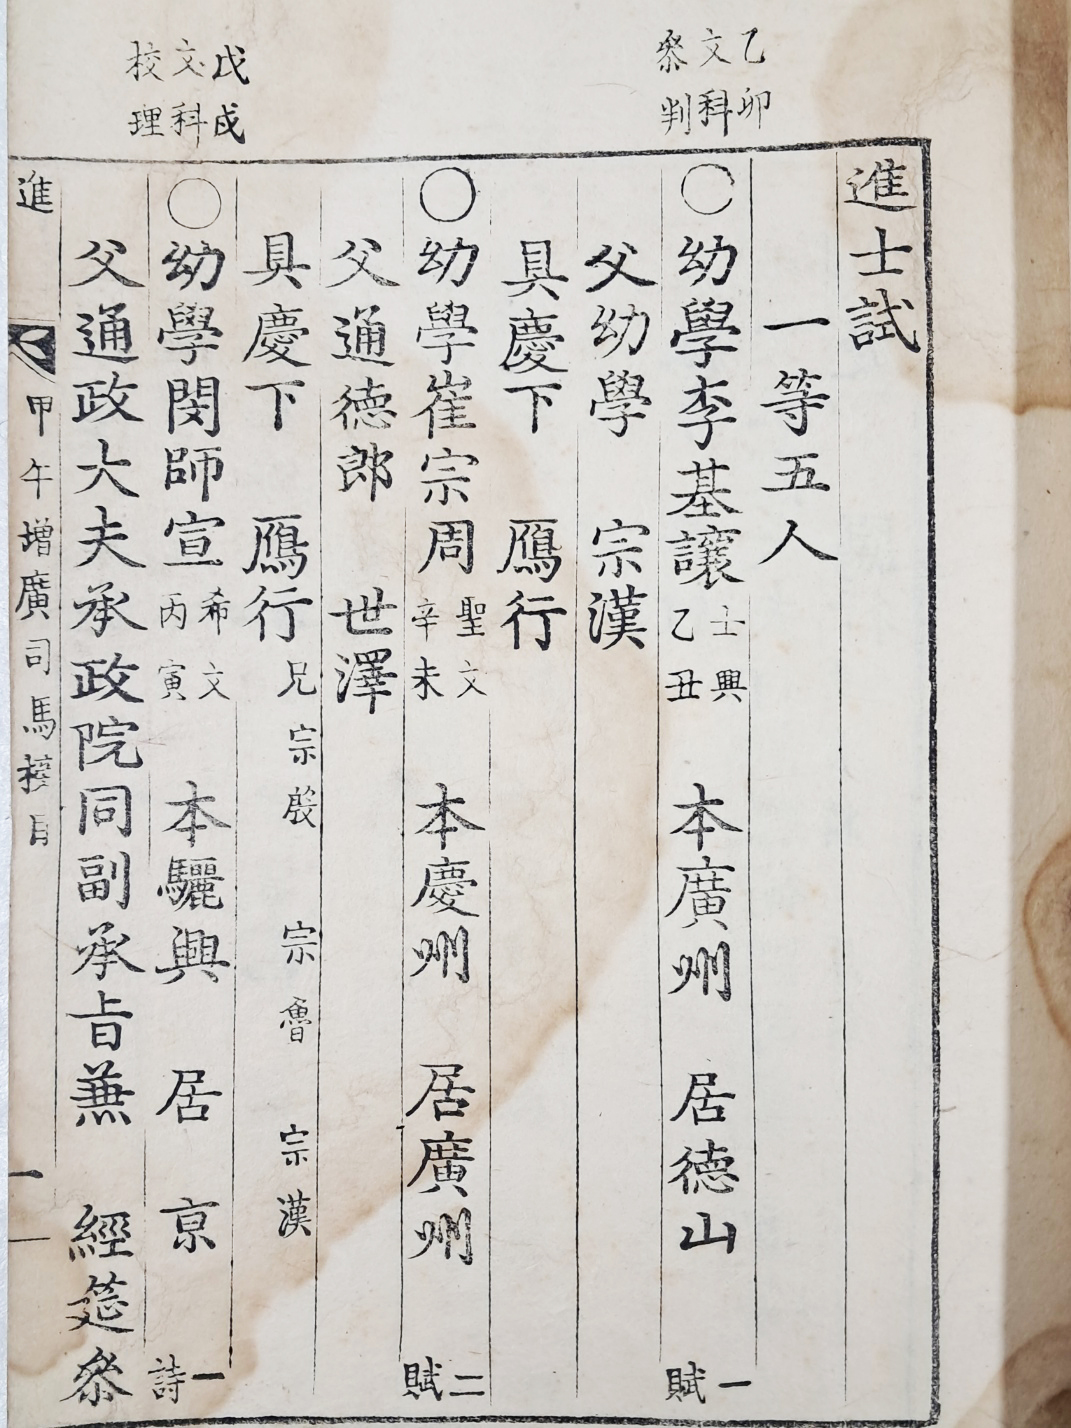 乙卯
文科
叅判
戊戌
文科
校理
進士試
一等五人
○幼學李基讓 士興 乙丑 本廣州 居德山 一賦
父幼學 宗漢
具慶下 鴈行
○幼學崔宗周 聖文 辛未 本慶州 居廣州 二賦
父通德郎 世澤
具慶下 鴈行 兄宗殷 宗魯 宗漢
○幼學閔師宣 希文 丙寅 本驪興 居京 一詩
父通政大夫承政院同副承旨兼 經筵叅
進 甲午增廣司馬榜目 一